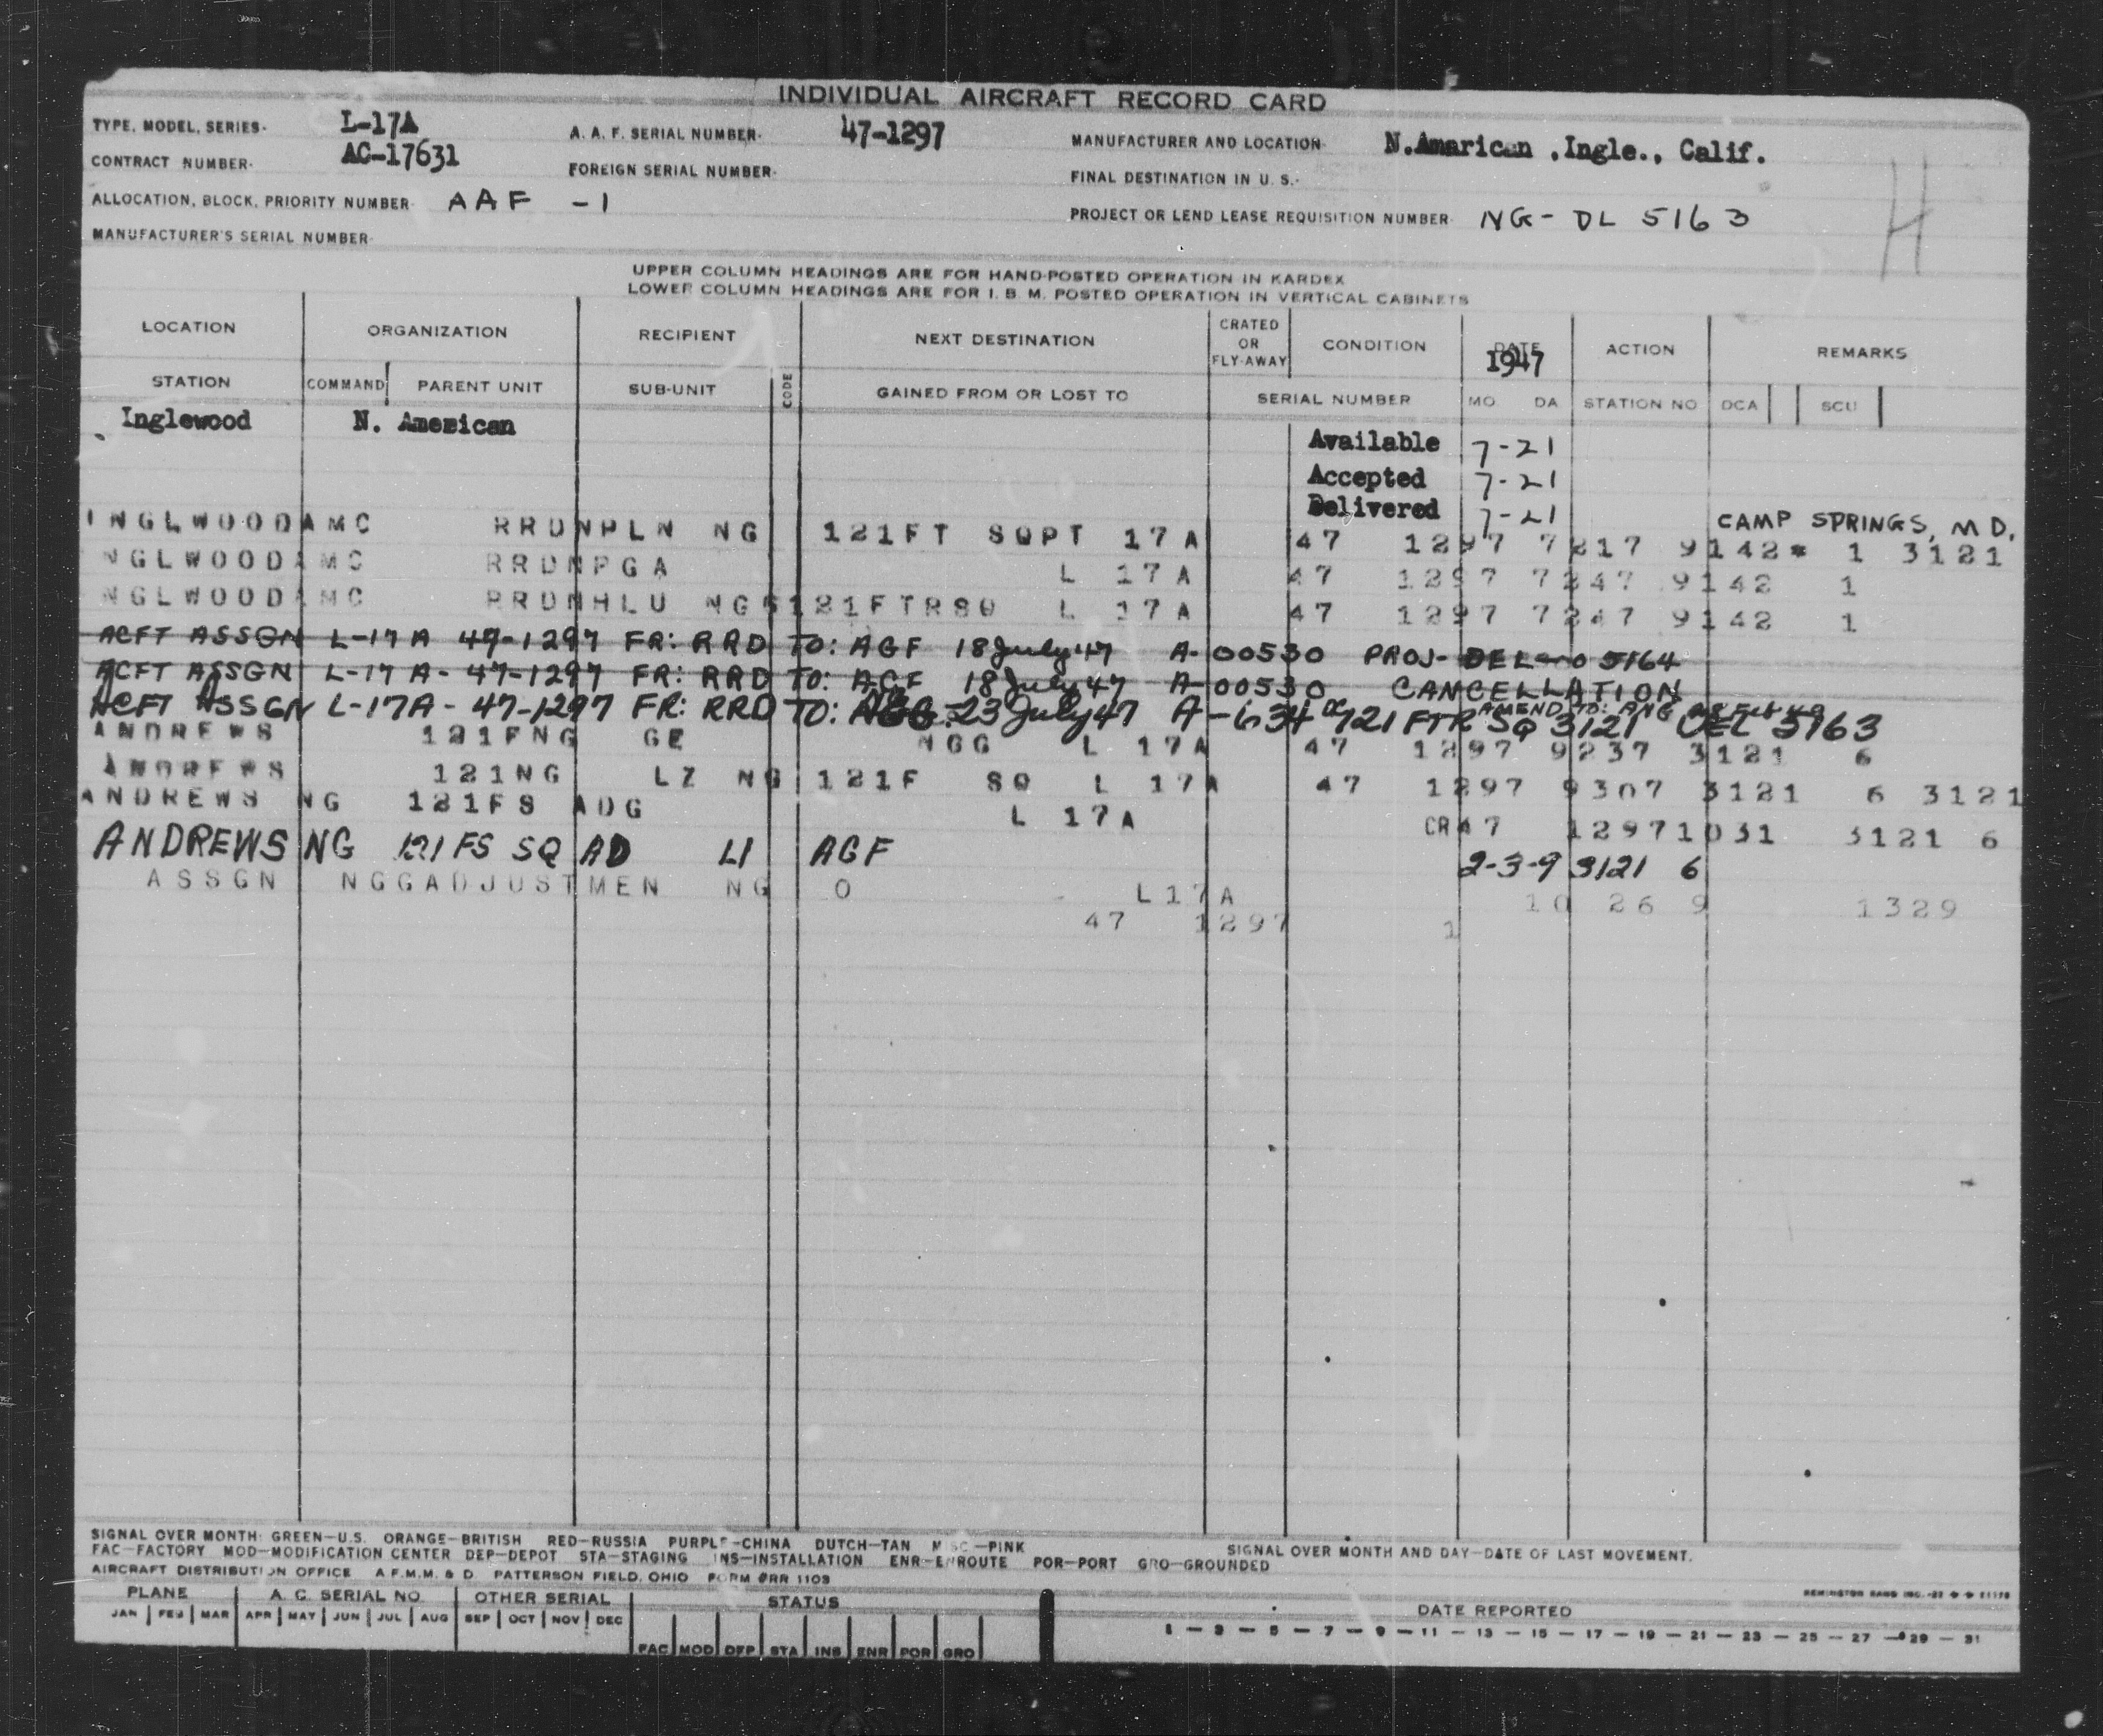 INDIVIDUAL AIRCRAFT RECORD CARD
TYPE, MODEL, SERIES- L-17A A. A. F. SERIAL NUMBER- 47-1297 MANUFACTURER AND LOCATION- N.Amarican ,Ingle., Calif.
CONTRACT NUMBER- AC-17631 FOREIGN SERIAL NUMBER- FINAL DESTINATION IN U. S.-
ALLOCATION, BLOCK, PRIORITY NUMBER- AAF -1 PROJECT OR LEND LEASE REQUISITION NUMBER- NG- DL 5163
MANUFACTURER'S SERIAL NUMBER-
H
UPPER COLUMN HEADINGS ARE FOR HAND-POSTED OPERATION IN KARDEX
LOWER COLUMN HEADINGS ARE FOR I. B. M. POSTED OPERATION IN VERTICAL CABINETS
LOCATION ORGANIZATION RECIPIENT NEXT DESTINATION CRATED OR FLY-AWAY CONDITION DATE 1947 ACTION REMARKS
STATION COMMAND PARENT UNIT SUB-UNIT CODE GAINED FROM OR LOST TO SERIAL NUMBER MO DA STATION NO DCA SCU
Inglewood N. American
Available 7-21
Accepted 7-21
Delivered 7-21
CAMP SPRINGS, MD.
INGLWOODAMC RRDNPLN NG 121FT SQPT 17A 47 1297 7217 9142* 1 3121
NGLWOODAMC RRDNPGA L 17A 47 1297 7247 9142 1
NGLWOODAMC RRDNHLU NG 121FTRSQ L 17A 47 1297 7247 9142 1
ACFT ASSGN L-17A 47-1297 FR: RRD TO: AGF 18 July 47 A-00530 PROJ- DEL 5164
ACFT ASSGN L-17A- 47-1297 FR: RRD TO: AGF 18 July 47 A-00530 CANCELLATION
AMEND TO: ANG
ACFT ASSGN L-17A- 47-1297 FR: RRD TO: 23 July 47 A-634 DC 121 FTR SQ 3121 DEL 5163
ANDREWS 121FNG GE NGG L 17A 47 1297 9237 3121 6
ANDREWS 121NG LZ NG 121F SQ L 17A 47 1297 9307 3121 6 3121
ANDREWS NG 121FS ADG L 17A CR47 12971031 3121 6
ANDREWS NG 121 FS SQ AD LI AGF 2-3-9 3121 6
ASSGN NGGADJUSTMEN NG O L17A 10 26 9 1329
47 1297 1
SIGNAL OVER MONTH: GREEN—U.S. ORANGE—BRITISH RED—RUSSIA PURPLE—CHINA DUTCH—TAN MISC.—PINK
SIGNAL OVER MONTH AND DAY—DATE OF LAST MOVEMENT.
FAC—FACTORY MOD—MODIFICATION CENTER DEP—DEPOT STA—STAGING INS—INSTALLATION ENR—ENROUTE POR—PORT GRO—GROUNDED
AIRCRAFT DISTRIBUTION OFFICE A.F.M.M. & D. PATTERSON FIELD, OHIO FORM #RR 1103
PLANE A. C. SERIAL NO. OTHER SERIAL STATUS DATE REPORTED
JAN FEB MAR APR MAY JUN JUL AUG SEP OCT NOV DEC
FAC MOD DEP STA INS ENR POR GRO
1 — 3 — 5 — 7 — 9 — 11 — 13 — 15 — 17 — 19 — 21 — 23 — 25 — 27 — 29 — 31